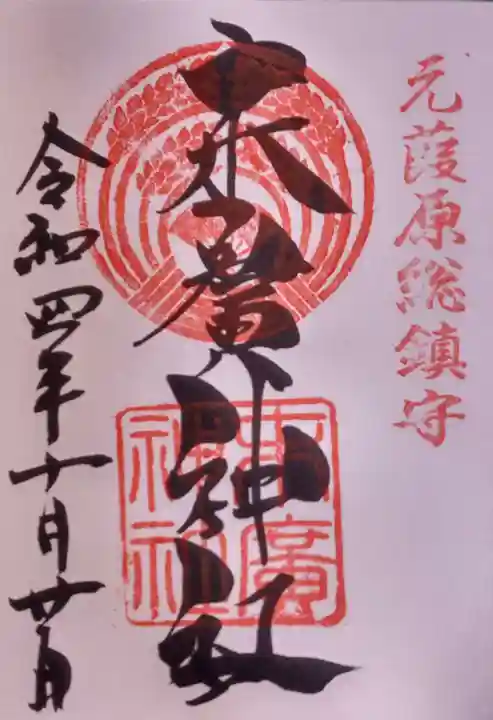 元葭原総鎮守
末廣神社
令和四年十月廿日
末廣
神社